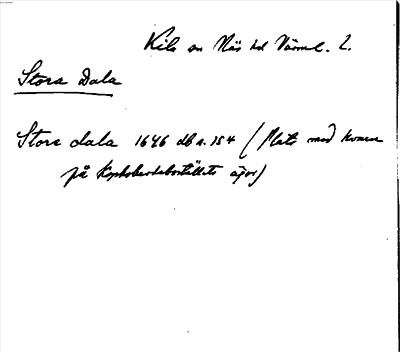 Kils sn Näs hd Värml. l.
Stora Dala
Stora dala 1646 db s. 154 (Plats med kvarn
på ägor)